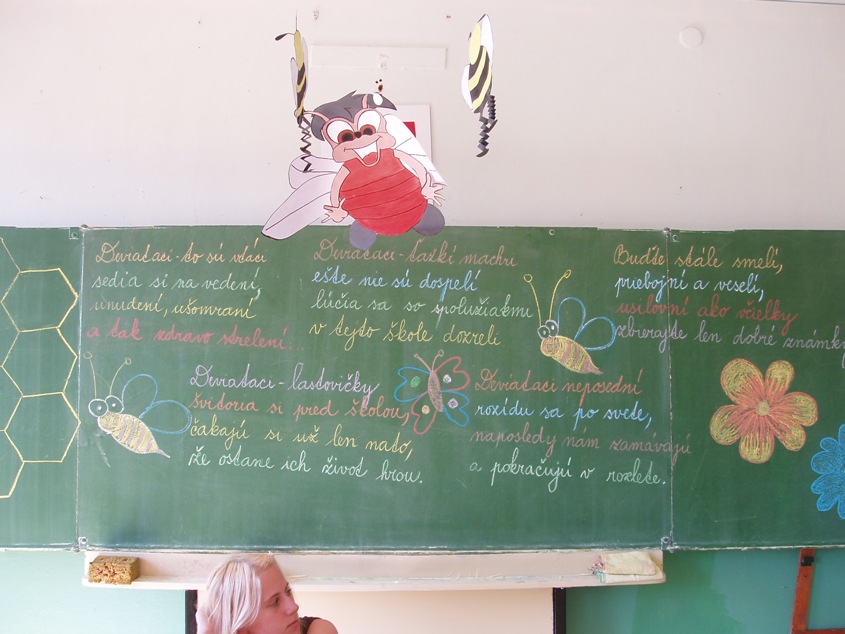 Deviataci-to sú vtáci
sedia si na vedení,
unudení, ušomraní
a tak zdravo strelení...
Deviataci-ťažkí machri
ešte nie sú dospelí
lúčia sa so spolužiakmi
v tejto škole dozreli
Buďte stále smelí,
priebojní a veselí,
usilovní ako včielky
zbierajte len dobré známky
Deviataci-lastovičky
švitoria si pred školou,
čakajú si už len nato,
že ostane ich život hrou.
Deviataci neposední
rozídu sa po svete,
naposledy nám zamávajú
a pokračujú v rozlete.